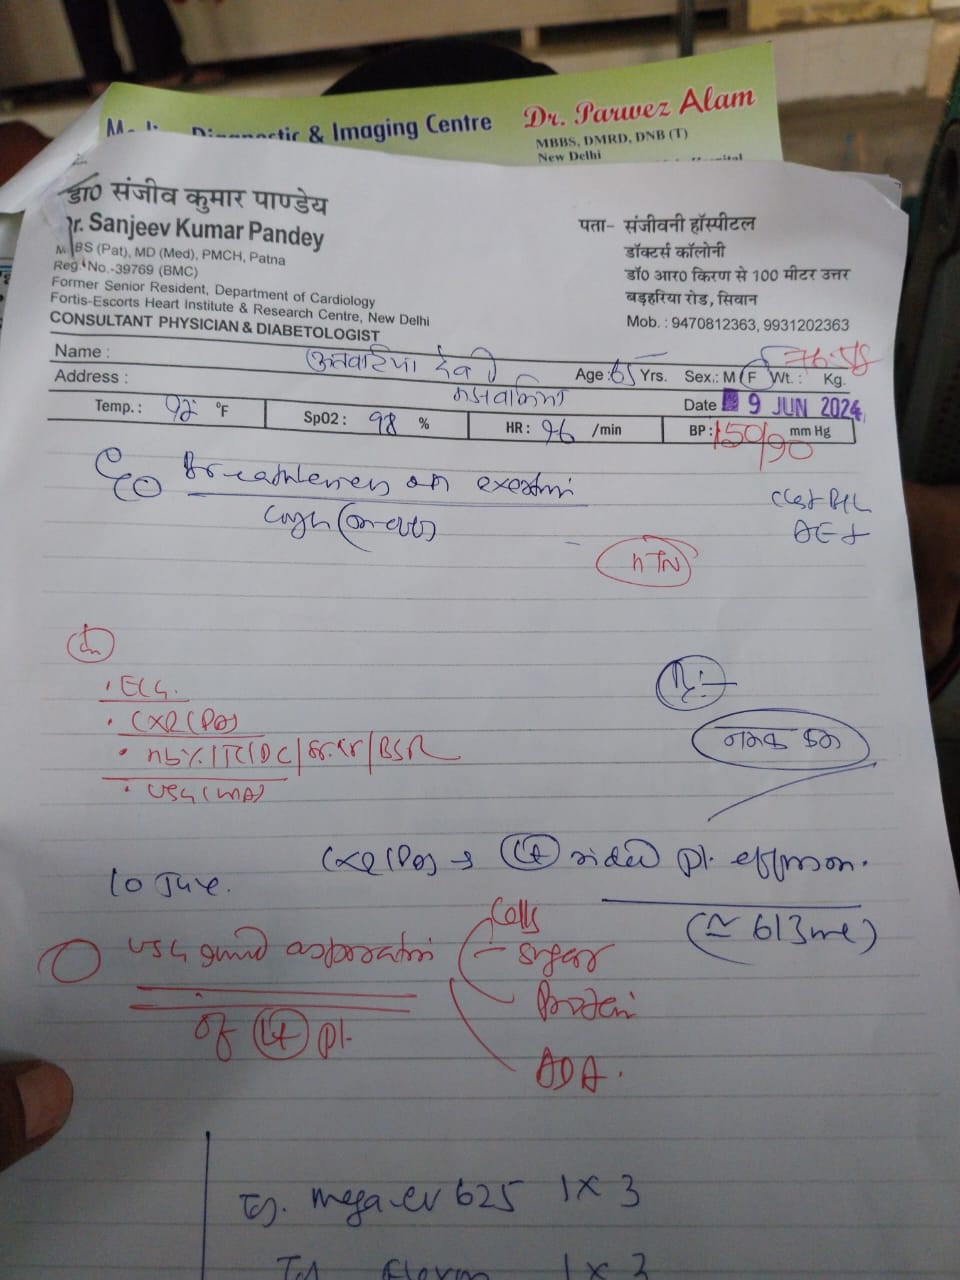 Diagnostic & Imaging Centre
Dr. Parwez Alam
MBBS, DMRD, DNB (T)
New Delhi
डा० संजीव कुमार पाण्डेय
Dr. Sanjeev Kumar Pandey
MBBS (Pat), MD (Med), PMCH, Patna
Reg. No.-39769 (BMC)
Former Senior Resident, Department of Cardiology
Fortis-Escorts Heart Institute & Research Centre, New Delhi
CONSULTANT PHYSICIAN & DIABETOLOGIST
पता- संजीवनी हॉस्पीटल
डॉक्टर्स कॉलोनी
डॉ० आर० किरण से 100 मीटर उत्तर
बड़हरिया रोड, सिवान
Mob. : 9470812363, 9931202363
Name : देवी Age : 65 Yrs. Sex.: M F Wt. : 76.58 Kg.
Address : Date 9 JUN 2024
Temp.: 92 °F SpO2 : 98 % HR : 96 /min BP : 150/90 mm Hg
C/O Breathlessness on exertion
Cough
HTN
• ECG.
• CXR (PA)
• Hb%/TC/DC/Sr. Cr/BSR
• USG (WA)
Rx:-
नमक कम
10 June.
CXR (PA) → Lt sided pl. effusion.
(≃ 613 ml)
USG guided aspiration
of Lt pl.
Cells
Sugar
Protein
ADA.
Tab. Mega-CV 625 1 x 3
1 x 3